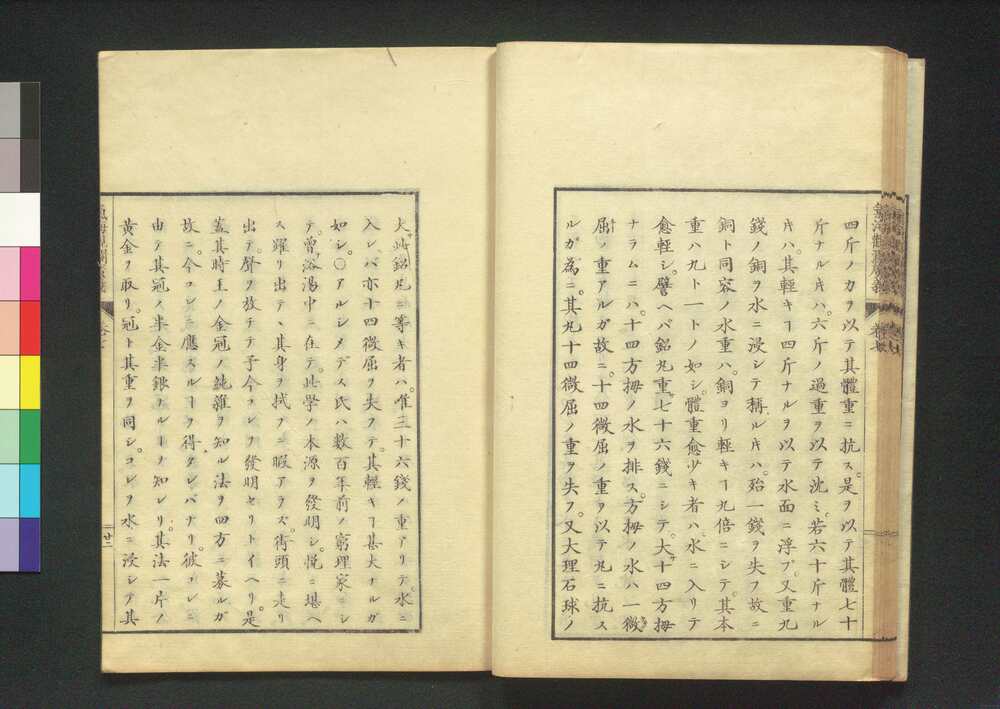 四斤ノ力ヲ以テ其體重ニ抗ス。是ヲ以テ其體七十
斤ナルキハ。六斤ノ過重ヲ以テ沈ミ。若六十斤ナル
キハ。其輕キヿ四斤ナルヲ以テ水面ニ浮プ。又重九
錢ノ銅ヲ水ニ浸シテ稱ルキハ。殆一錢ヲ失フ故ニ
銅ト同容ノ水重ハ。銅ヨリ輕キヿ九倍ニシテ。其本
重ハ九ト一トノ如シ。體重愈少キ者ハ。水ニ入リテ
愈輕シ。譬ヘバ鉛丸重。七十六錢ニシテ。大サ十四方拇
ナラムニハ。十四方拇ノ水ヲ排ス。方拇ノ水ハ一微
屈ノ重アルガ故ニ。十四微屈ノ重ヲ以テ丸ニ抗ス
ルガ為ニ。其丸十四微屈ノ重ヲ失フ。又大理石球ノ
大サ此鉛丸ニ等キ者ハ。唯三十六錢ノ重アリテ。水ニ
入レバ亦十四微屈ヲ失フテ。其輕キヿ甚大ナルガ
如シ。○アルシメデス氏ハ數百年前ノ窮理家ニシ
テ。曾浴湯中ニ在テ。此學ノ本源ヲ發明シ。悅ニ堪ヘ
ス躍リ出テ、其身ヲ拭フニ暇アラズ。街頭ニ走リ
出テ。聲ヲ放チテ予今コレヲ發明セリトイヘリ。是
蓋其時王ノ金冠ノ純雜ヲ知ル法ヲ四方ニ募ルガ
故ニ。今コレニ應スルヿヲ得タレバナリ。彼コレニ
由テ其冠ノ半金半銀ナルヿヲ知レリ。其法一片ノ
黃金ヲ取リ。冠ト其重ヲ同シ。コレヲ水ニ浸シテ其
廿二